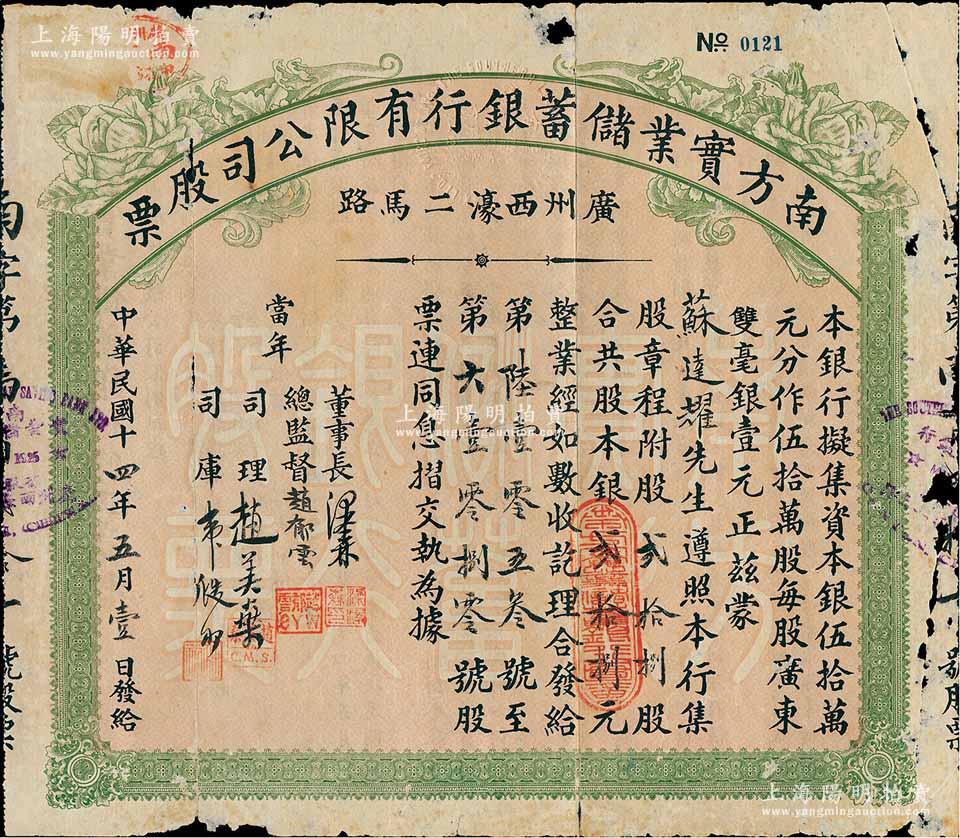 上海陽明拍賣
www.yangmingauction.com
上海陽明拍賣
www.yangmingauction.com
№ 0121
南方實業儲蓄銀行有限公司股票
廣州西濠二馬路
本銀行擬集資本銀伍拾萬
元分作伍拾萬股每股廣東
雙毫銀壹元正茲蒙
蘇達耀先生遵照本行集
股章程附股貳拾捌股
合共股本銀貳拾捌元
整業經如數收訖理合發給
第陸壹零五叁號至
第六壹零捌零號股
票連同息摺交執為據
董事長
總監督趙郁雲
當年
司理趙美
司庫
中華民國十四年五月壹日發給
C.M.S.
南字第
號股票
字第
號股票
SAVING BANK
1925
THE SOUTH
上海陽明拍賣
www.yangmingauction.com
上海陽明拍賣
www.yangmingauction.com